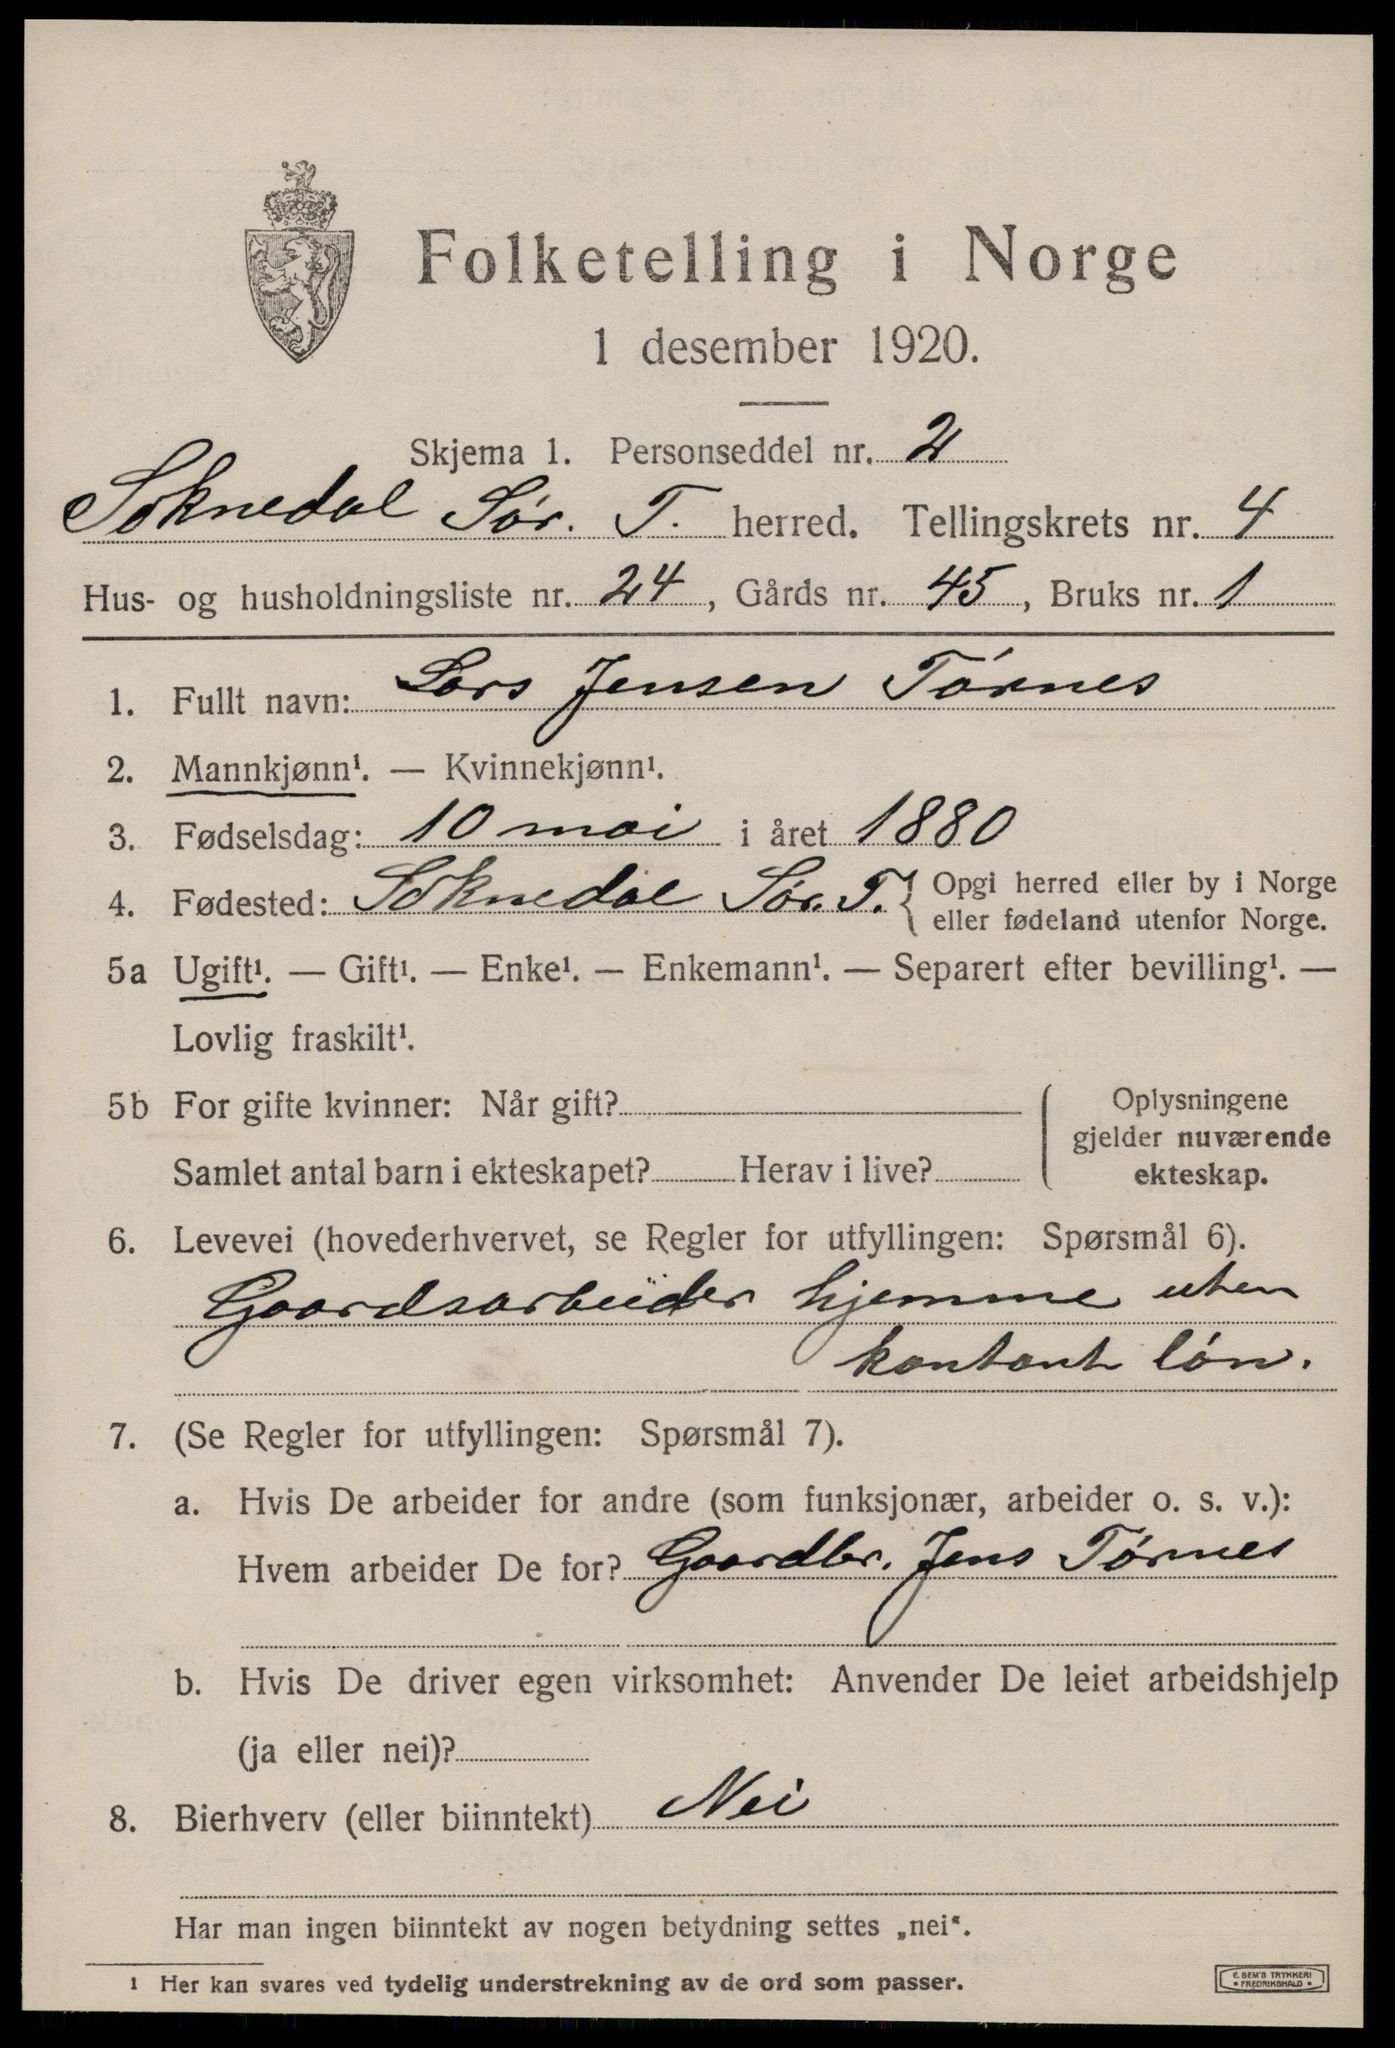 Folketelling i Norge
1 desember 1920.
Skjema 1. Personseddel nr. 2
Soknedal Sør. T. herred. Tellingskrets nr. 4
Hus- og husholdningsliste nr. 24, Gårds nr. 45, Bruks nr. 1
1. Fullt navn: Lars Jensen Tørnes
2. Mannkjønn¹. — Kvinnekjønn¹.
3. Fødselsdag: 10 mai i året 1880
4. Fødested: Soknedal Sør. T. { Opgi herred eller by i Norge
eller fødeland utenfor Norge.
5a Ugift¹. — Gift¹. — Enke¹. — Enkemann¹. — Separert efter bevilling¹. —
Lovlig fraskilt¹.
5b For gifte kvinner: Når gift?
Samlet antal barn i ekteskapet? Herav i live?
Oplysningene
gjelder nuværende
ekteskap.
6. Levevei (hovederhvervet, se Regler for utfyllingen: Spørsmål 6).
Gaardsarbeider hjemme uten
kontant løn.
7. (Se Regler for utfyllingen: Spørsmål 7).
a. Hvis De arbeider for andre (som funksjonær, arbeider o. s. v.):
Hvem arbeider De for? Gaardbr. Jens Tørnes
b. Hvis De driver egen virksomhet: Anvender De leiet arbeidshjelp
(ja eller nei)?
8. Bierhverv (eller biinntekt) Nei
Har man ingen biinntekt av nogen betydning settes „nei“.
1 Her kan svares ved tydelig understrekning av de ord som passer.
E. SEM'S TRYKKERI
• FREDRIKSHALD •